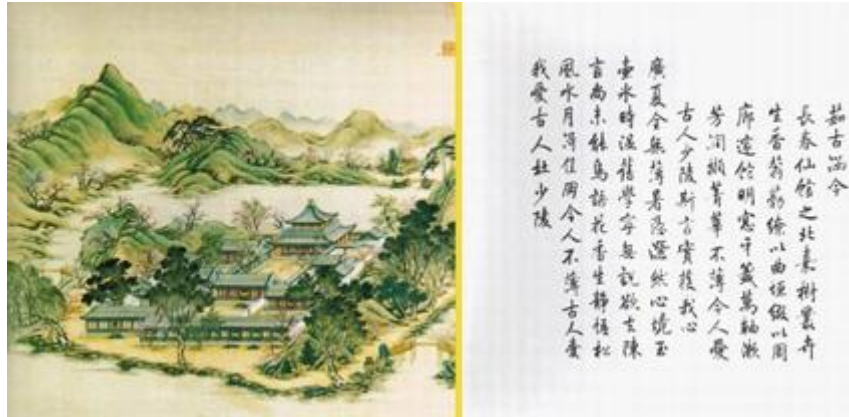 茹古涵今
長春仙館之北嘉樹叢卉
生香蓊葧繚以曲垣綴以周
廊邃館明窗牙籤萬軸漱
芳潤擷菁華不薄今人愛
古人少陵斯言實獲我心
廣夏全無薄暑憑灑然心境玉
壺冰時溫舊學寧無說欲去陳
言尚未能鳥語花香生靜悟松
風水月得佳朋今人不薄古人愛
我愛古人杜少陵